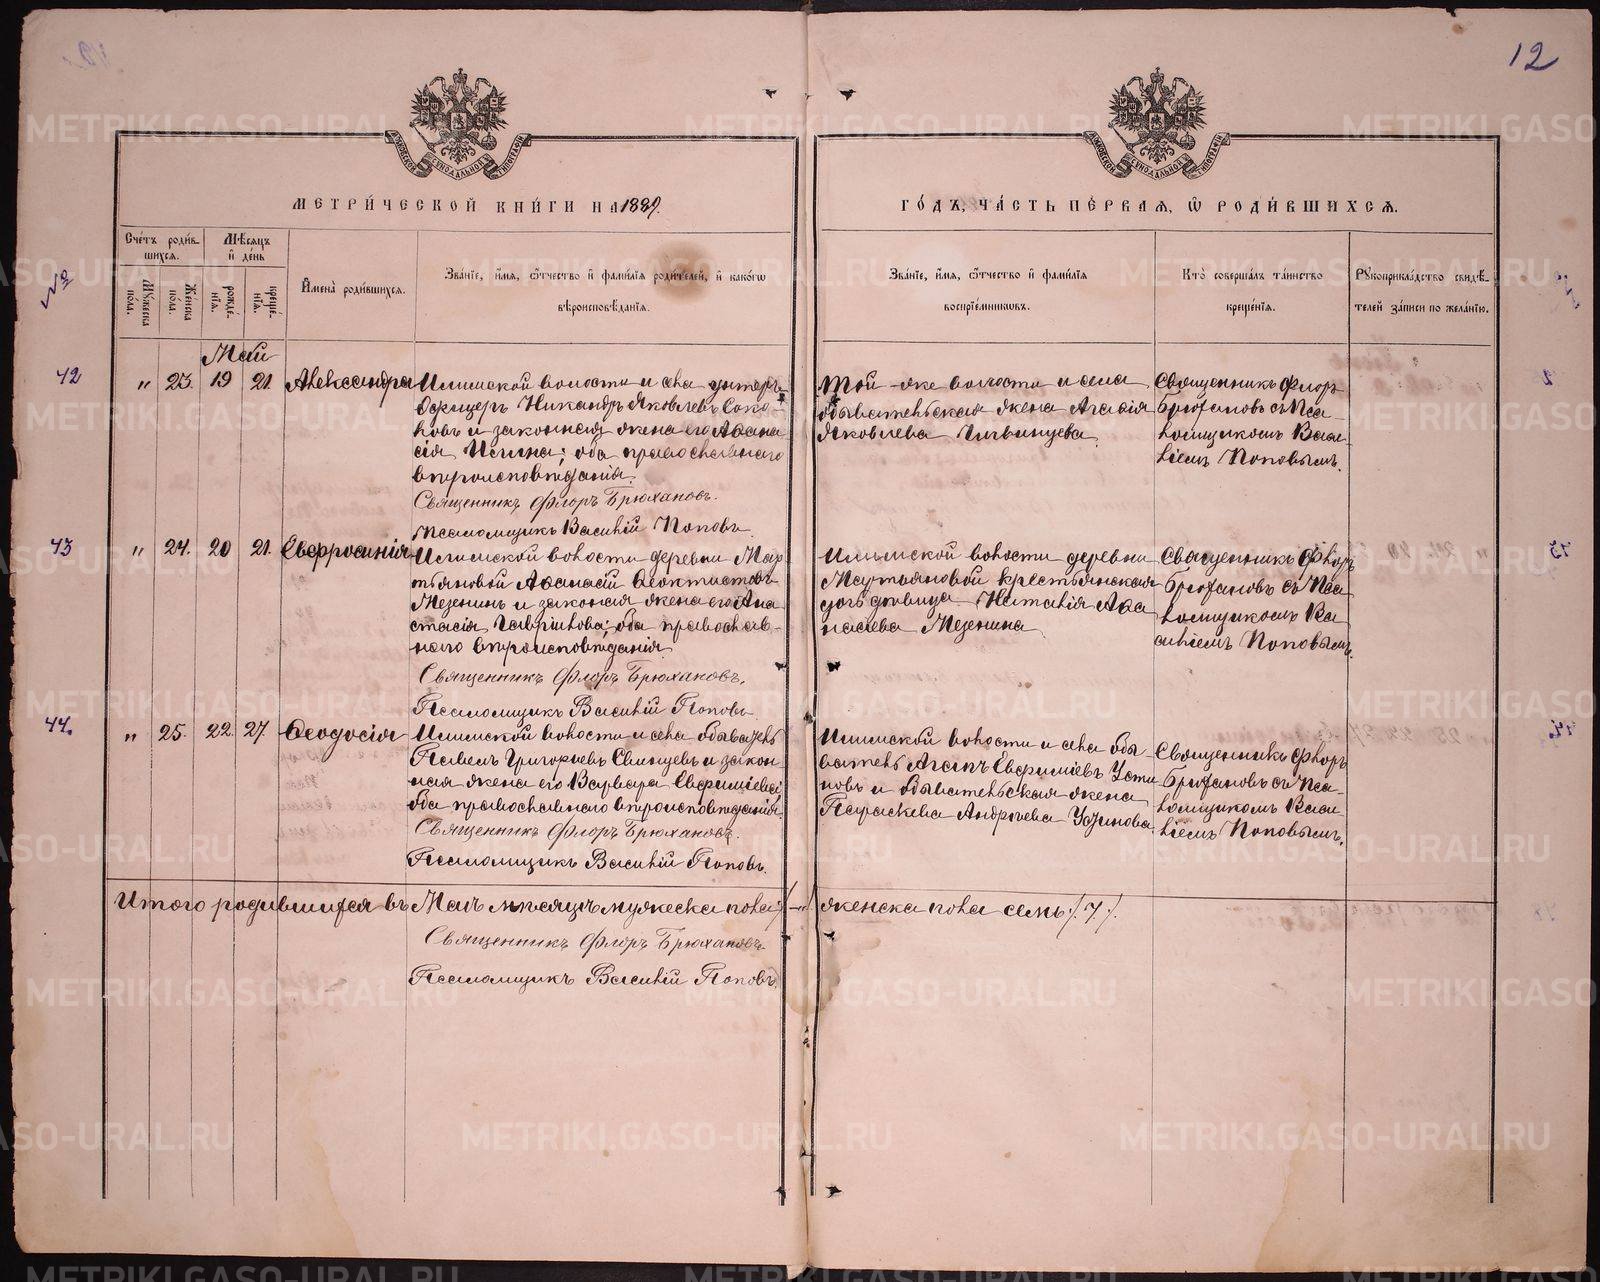 12
МЕТРИ́ЧЕСКОЙ КНИ́ГИ НА 1889.
ГО́ДЪ, ЧА́СТЬ ПЕ́РВАЯ, Ѡ РОДИ́ВШИХСѦ.
Сче́тъ роди́вшихся.
Мѣ́сяцъ и́ де́нь
И҆мена̀ роди́вшихся.
Зва́нїе, и҆́мя, ѻ҆́тчество и҆ фами́лїя роди́телей, и҆ како́гѡ
вѣроисповѣ́данїя.
Му́жеска по́ла.
Же́нска по́ла.
рожде́нїя.
креще́нїя.
Зва́нїе, и҆́мя, ѻ҆́тчество и҆ фами́лїя
воспрїе́мниковъ.
Кто̀ соверша́лъ та́инство
креще́нїя.
Рꙋкоприкла́дство свидѣ́-
телей за́писи по жела́нїю.
№
Май
42 " 23. 19 21. Александра
Илимской волости и села унтеръ-
Офицеръ Никандръ Яковлевъ Соко-
ловъ и законная жена его Аѳана-
сія ; оба православнаго
вѣроисповѣданія.
Священникъ Флоръ Брюхановъ.
Псаломщикъ Василій Поповъ.
Той-же волости и села
обывательская жена Агафія
Яковлева
Священникъ Флоръ
Брюхановъ съ Пса-
ломщикомъ Васи-
ліемъ Поповымъ.
43 " 24. 20 21. Евфросинія
Илимской волости деревни Мар-
тьяновой Аѳанасій Ѳеоктистовъ
Мезенинъ и законная жена его Ана-
стасія Гаврилова; оба православ-
наго вѣроисповѣданія.
Священникъ Флоръ Брюхановъ.
Псаломщикъ Василій Поповъ.
Илимской волости деревни
Мартьяновой крестьянская
дочь дѣвица Наталія Аѳа-
насіева Мезенина.
Священникъ Флоръ
Брюхановъ съ Пса-
ломщикомъ Ва-
силіемъ Поповымъ.
44. " 25. 22. 27. Ѳеодосія
Илимской волости и села обыватель
Павелъ Григорьевъ Свинцевъ и закон-
ная жена его Варвара Евфиміева;
оба православнаго вѣроисповѣданія.
Священникъ Флоръ Брюхановъ.
Псаломщикъ Василій Поповъ.
Илимской волости и села обы-
ватель Агапъ Евфиміевъ Усти-
новъ и обывательская жена
Параскева Андреева
Священникъ Флоръ
Брюхановъ съ Пса-
ломщикомъ Васи-
ліемъ Поповымъ.
Итого родившихся въ Маѣ мѣсяцѣ мужеска пола /-/ женска пола семь /7/.
Священникъ Флоръ Брюхановъ
Псаломщикъ Василій Поповъ.
METRIKI.GASO-URAL.RU